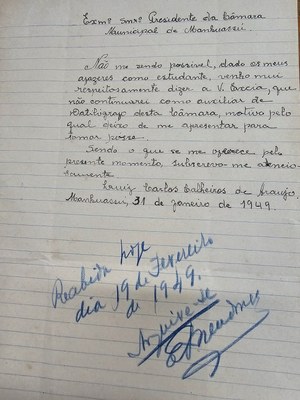 Exmº. Snrº. Presidente da Câmara
Municipal de Manhuassú
Não me sendo possivel, dado os meus
afazeres como estudante, venho mui
respeitosamente dizer a V. Excia, que
não continuarei como auxiliar de
Datilógrafo desta Câmara, motivo pelo
qual deixo de me apresentar para
tomar posse.
Sendo o que se me oferece pelo
presente momento, subscrevo-me atencio-
samente
Luiz Carlos Calheiros de Araujo.
Manhuassú, 31 de janeiro de 1949.
Recebida hoje
dia 19 de Fevereito
de 1949.
Arquive-se